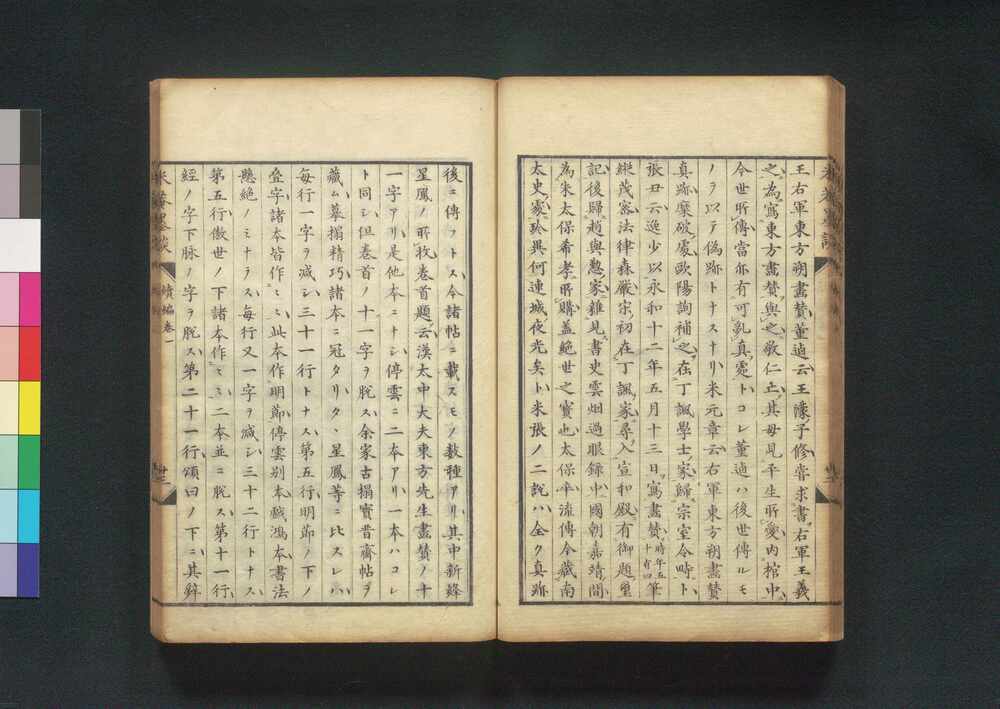 王右軍東方朔畫賛董逌云王隊子修嘗求書右軍王羲
之為寫東方畫賛與之敬仁亡其母見平生所愛内棺中
今世所傳當亦有可亂真處トコレ董逌ハ後世傳ルモ
ノヲ以テ偽跡トナスナリ米元章云右軍東方朔畫賛
真跡糜破處歐陽詢補之在丁諷學士家歸宗室令時ト
張丑云逸少以永和十二年五月十三日寫畫賛時年五十有四筆
縱茂密法律森嚴宗初在丁諷家尋入宣和殿有御題璽
記後歸趙與懃家雖見書史雲烟過眼錄中國朝嘉靖間
為朱太保希孝所購蓋絶世之寶也太保卒流傳今藏南
太史家珍異何連城夜光矣ト米張ノ二説ハ全ク真跡
後ニ傳フトス今諸帖ニ載スモノ數種アリ其中新鋒
星鳳ノ所收卷首題云漢太中大夫東方先生畫賛ノ十
一字アリ是他本ニナシ停雲ニ二本アリ一本ハコレ
ト同シ但卷首ノ十一字ヲ脱ス余家古搨寶晋齋帖ヲ
藏ム摹搨精巧諸本ニ冠タリタヽ星鳳等ニ比スレハ
每行一字ヲ減シ三十一行トナス第五行明節ノ下ノ
㑹字諸本皆作ミ此本作明節停雲别本戯鴻本書法
懸絶ノミナラス每行又一字ヲ減シ三十二行トナス
第五行傲世ノ下諸本作ミ二本並ニ脱ス第十一行
經ノ字下脉ノ字ヲ脱ス第二十一行頌曰ノ下ニ其辭
米菴墨談
續編卷一